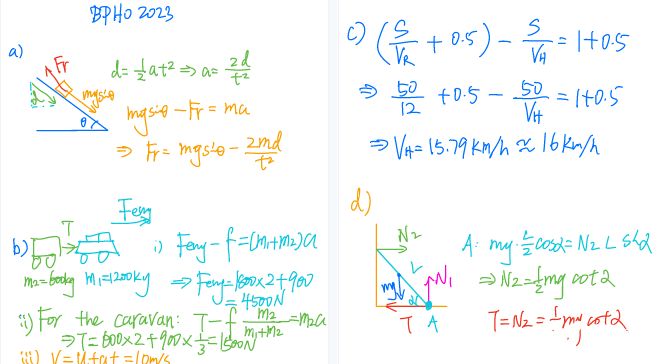 BPHO 2023
a)
Fr
d
mgsinθ
θ
d = 1/2 at² ⇒ a = 2d/t²
mgsinθ - Fr = ma
⇒ Fr = mgsinθ - 2md/t²
b)
T
Feng
m₂ = 600kg m₁ = 1200kg
i) Feng - f = (m₁+m₂)a
⇒ Feng = 1800×2+900
= 4500N
ii) For the caravan: T - f m₂/(m₁+m₂) = m₂a
⇒ T = 600×2 + 900×1/3 = 1500N
iii) V = u+at = 10m/s
c) (S/VR + 0.5) - S/VH = 1+0.5
⇒ 50/12 + 0.5 - 50/VH = 1+0.5
⇒ VH = 15.79 km/h ≈ 16 km/h
d)
N2
L
mg
N1
α
T
A
A: mg·L/2 cosα = N2 L sinα
⇒ N2 = 1/2 mg cotα
T = N2 = 1/2 mg cotα